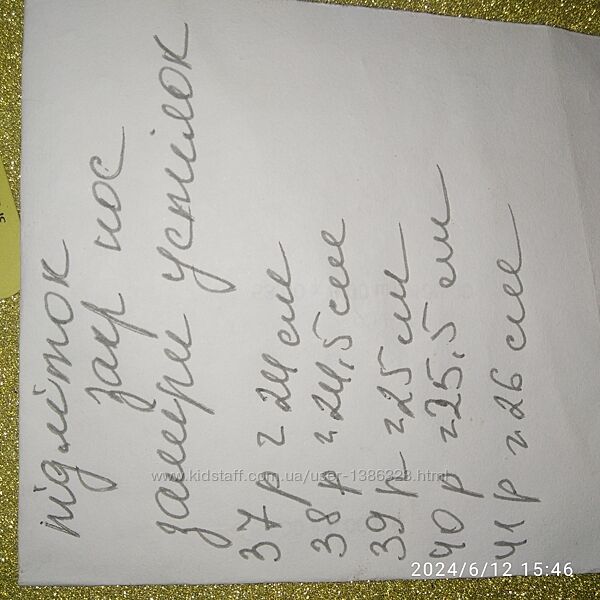 підліток
закр нос
заміри устілок
37 р ≈ 24 см
38 р ≈ 24,5 см
39 р ≈ 25 см
40 р ≈ 25,5 см
41 р ≈ 26 см
www.kidstaff.com.ua/user-1386328.html
2024/6/12 15:46